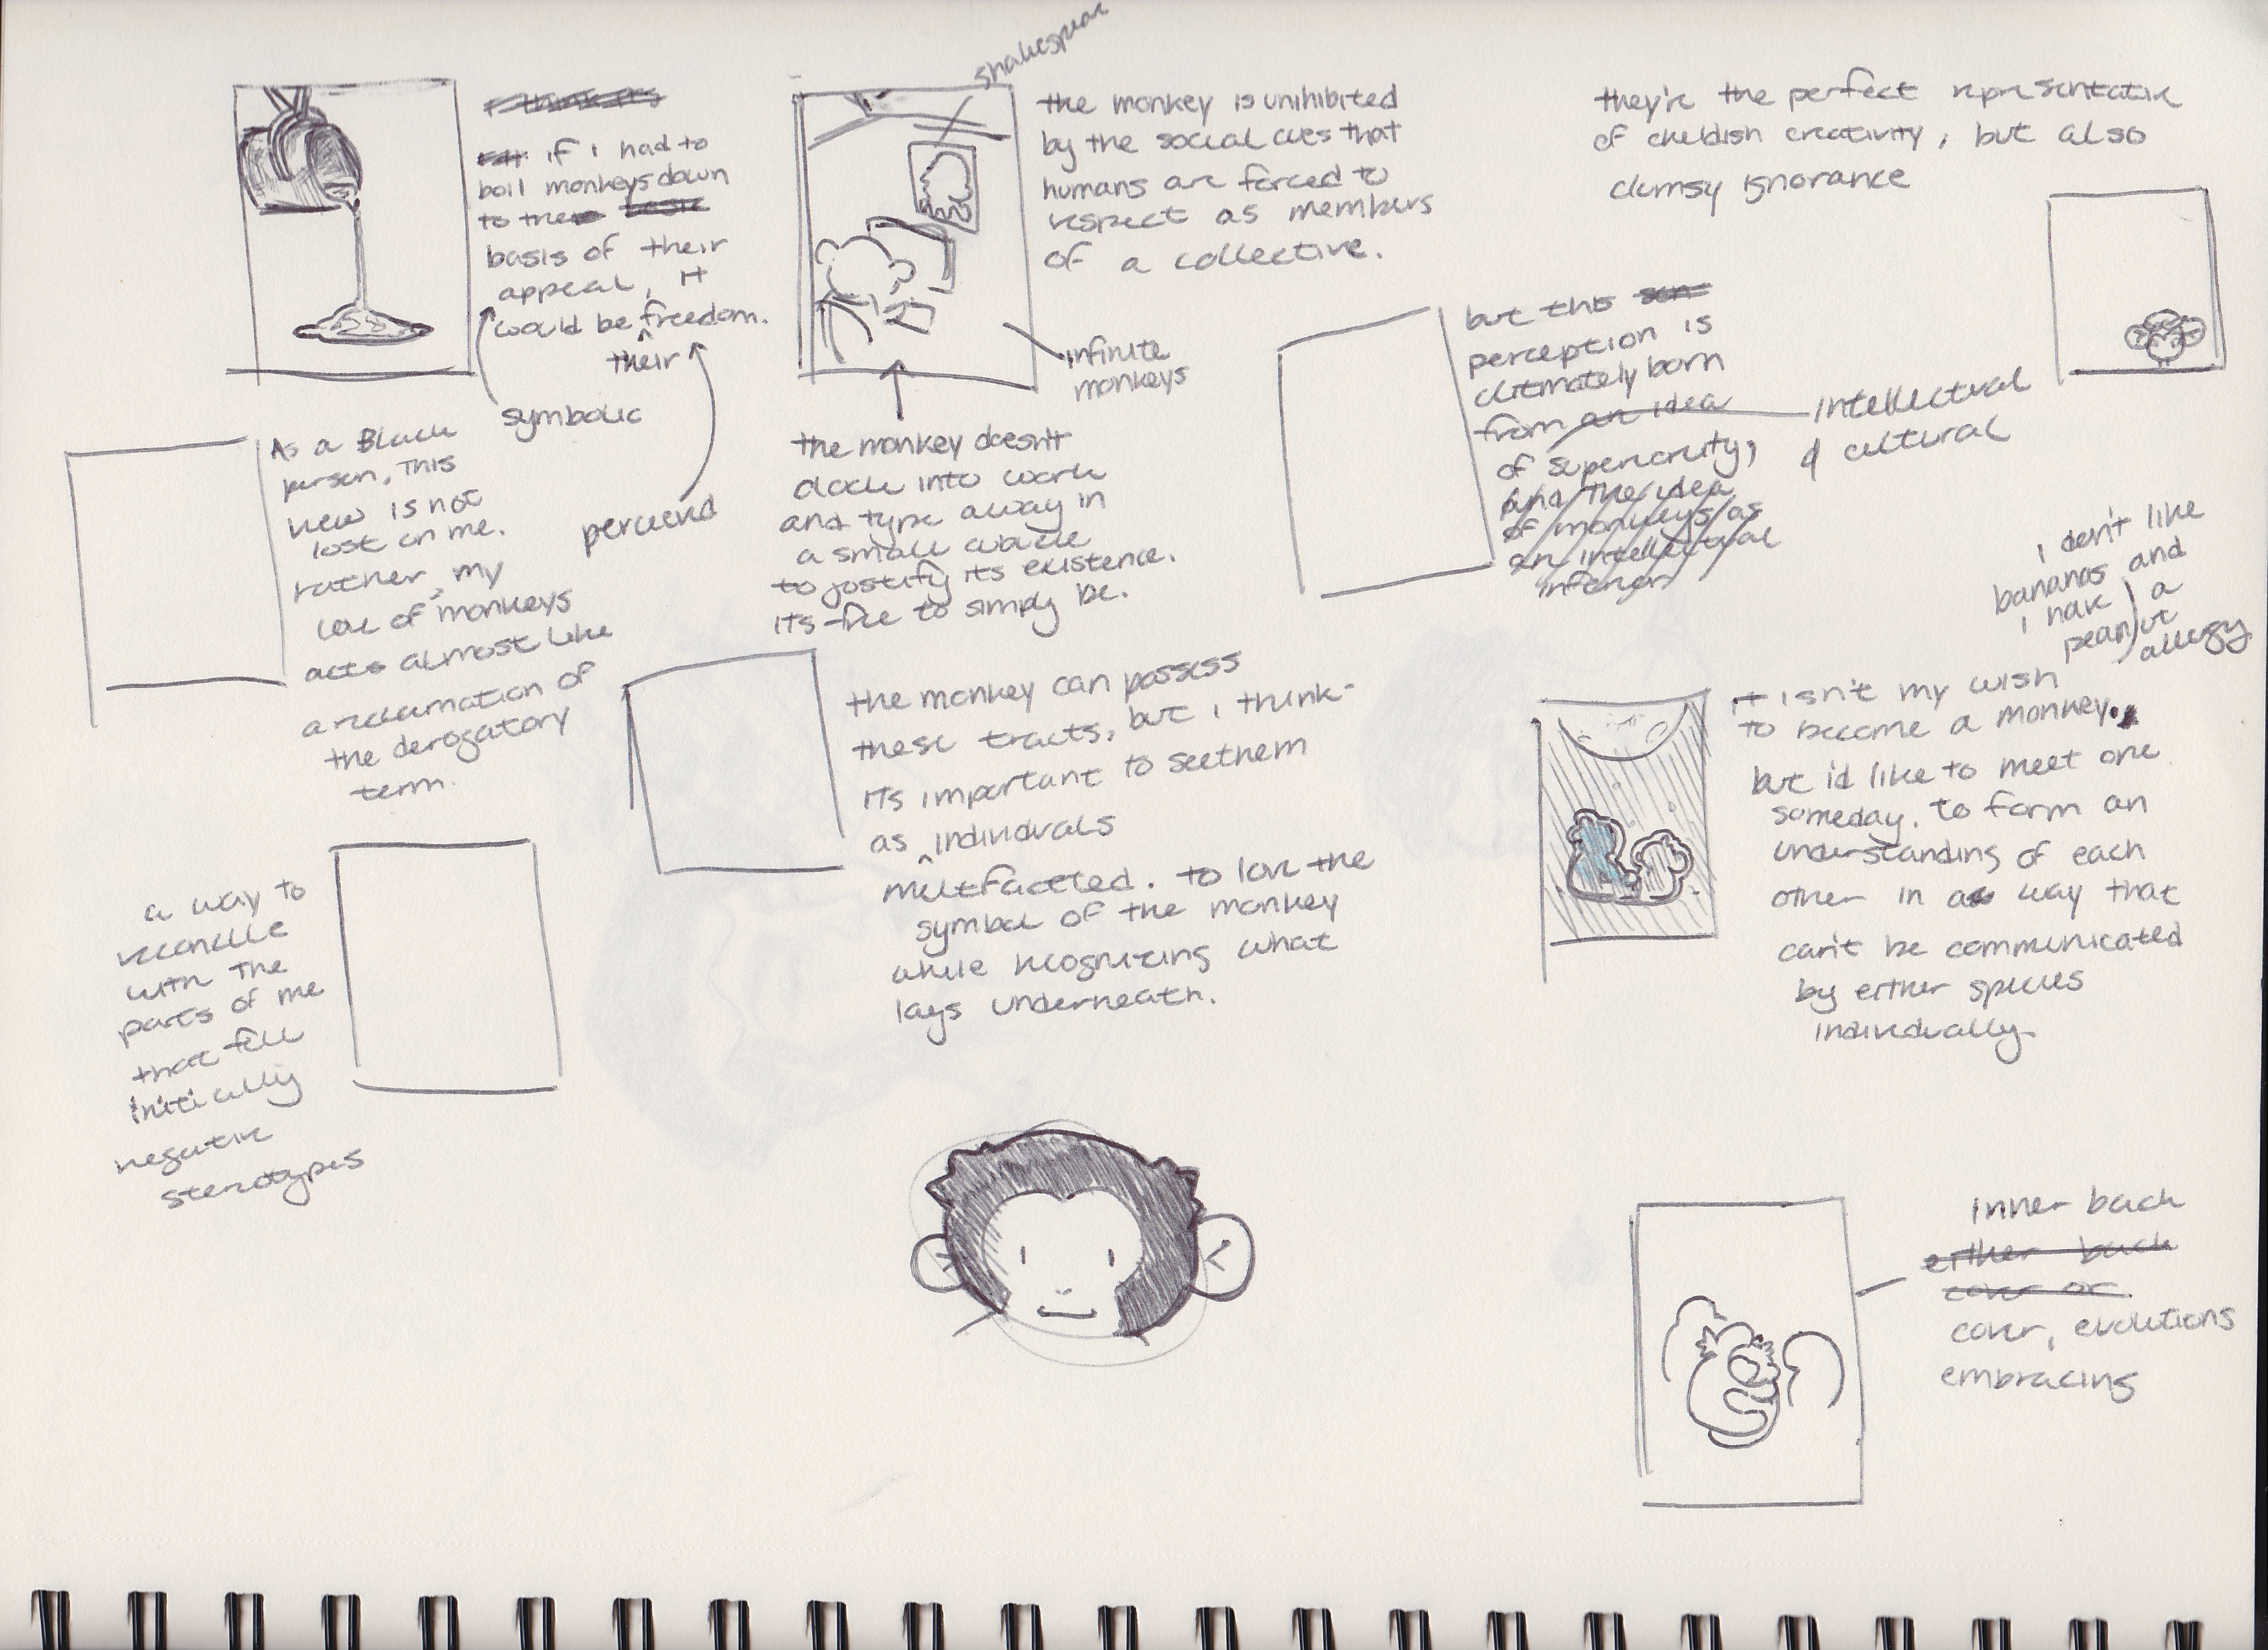 I think its
if i had to
boil monkeys down
to the basic
basis of their
appeal, it
would be freedom.
their
symbolic
perceived
shakespear
the monkey is unihibited
by the social cues that
humans are forced to
respect as members
of a collective.
infinite
monkeys
the monkey doesn't
clock into work
and type away in
a small cubicle
to justify its existence.
its free to simply be.
they're the perfect representative
of childish creativity, but also
clumsy ignorance
but this
perception is
ultimately born
from an idea
of superiority,
and the idea
of monkeys as
an intellectual
inferior
intellectual
& cultural
As a Black
person, this
view is not
lost on me.
rather, my
love of monkeys
acts almost like
a reclamation of
the derogatory
term.
a way to
reconcile
with the
parts of me
that fell
initially
negative
sterotypes
the monkey can possess
these traits, but i think
its important to see them
as individuals
multfaceted. to love the
symbol of the monkey
while recognizing what
lays underneath.
i don't like
bananas and
i have a
peanut
allergy
it isn't my wish
to become a monkey.
but i'd like to meet one
someday. to form an
understanding of each
other in a way that
can't be communicated
by either species
individually.
inner back
either back
cover or
cover, evolutions
embracing